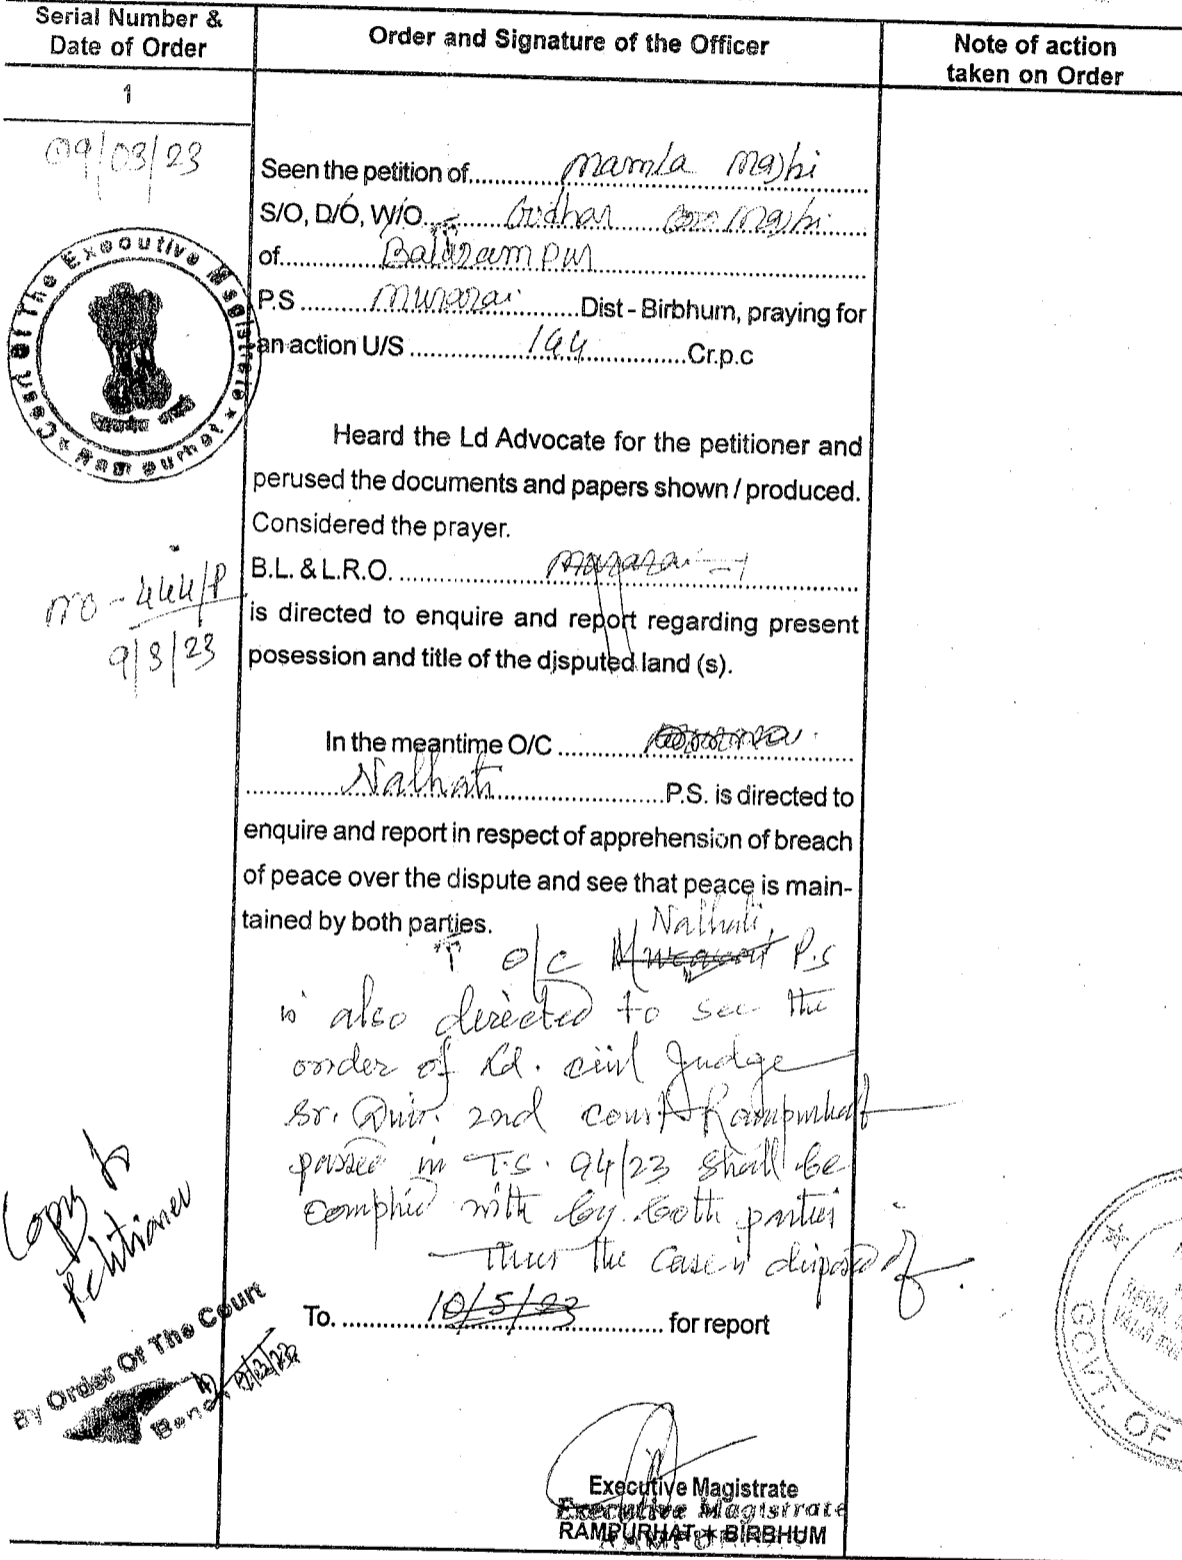 Serial Number &
Date of Order
Order and Signature of the Officer
Note of action
taken on Order
1
09/03/23
Seen the petition of.......... Mamla Majhi
S/O, D/O, W/O.......... Majhi
of.......... Balarampur
P.S .......... Murarai ..........Dist - Birbhum, praying for
an action U/S .......... 144 ..........Cr.p.c
Court Of The Executive Magistrate
Heard the Ld Advocate for the petitioner and
perused the documents and papers shown / produced.
Considered the prayer.
B.L. & L.R.O. ..........
is directed to enquire and report regarding present
posession and title of the disputed land (s).
no - 444/P
9/3/23
In the meantime O/C ..........
.......... Nalhati ..........P.S. is directed to
enquire and report in respect of apprehension of breach
of peace over the dispute and see that peace is main-
tained by both parties.
Nalhati
o/c P.S
is also directed to see the
order of Ld. civil Judge
Sr. Divn. 2nd court Rampurhat
passed in T.S. 94/23 shall be
complied with by both parties
Thus the case is disposed of.
To. .......... 10/5/23 .......... for report
Copy to
Petitioner
By Order Of The Court
Bench
Executive Magistrate
Executive Magistrate
RAMPURHAT * BIRBHUM
GOVT. OF